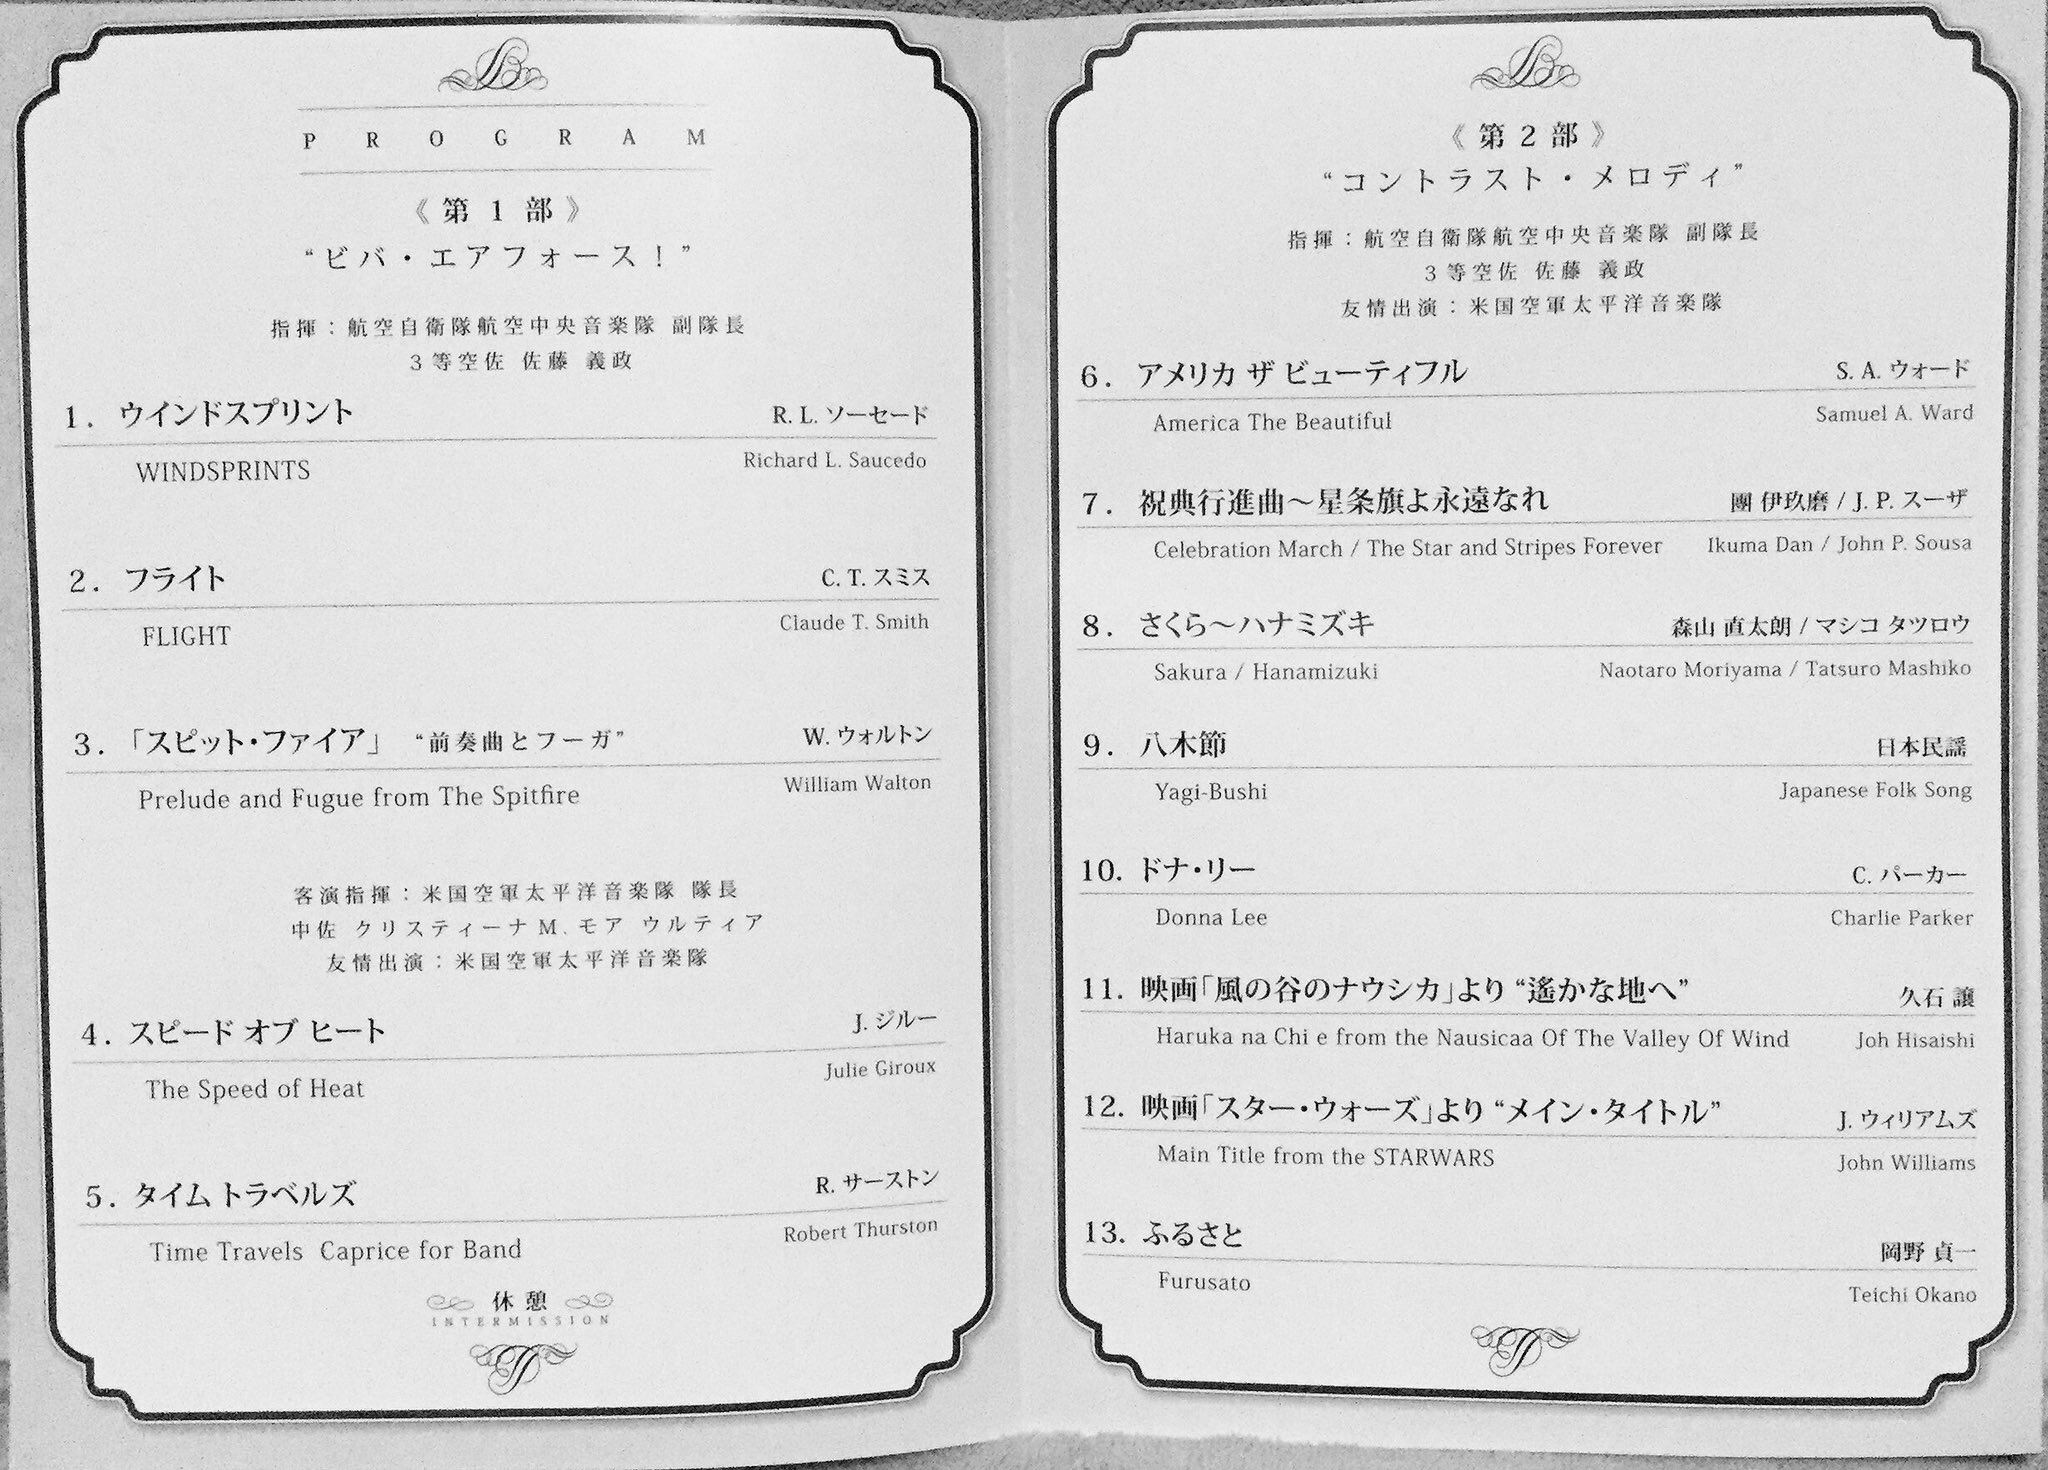 PROGRAM
《第1部》
“ビバ・エアフォース！”
指揮：航空自衛隊航空中央音楽隊 副隊長
3等空佐 佐藤 義政
1. ウインドスプリント R. L. ソーセード
WINDSPRINTS Richard L. Saucedo
2. フライト C. T. スミス
FLIGHT Claude T. Smith
3. 「スピット・ファイア」 “前奏曲とフーガ” W. ウォルトン
Prelude and Fugue from The Spitfire William Walton
客演指揮：米国空軍太平洋音楽隊 隊長
中佐 クリスティーナ M. モア ウルティア
友情出演：米国空軍太平洋音楽隊
4. スピード オブ ヒート J. ジルー
The Speed of Heat Julie Giroux
5. タイム トラベルズ R. サーストン
Time Travels Caprice for Band Robert Thurston
休憩
INTERMISSION
《第2部》
“コントラスト・メロディ”
指揮：航空自衛隊航空中央音楽隊 副隊長
3等空佐 佐藤 義政
友情出演：米国空軍太平洋音楽隊
6. アメリカ ザ ビューティフル S. A. ウォード
America The Beautiful Samuel A. Ward
7. 祝典行進曲～星条旗よ永遠なれ 團 伊玖磨 / J. P. スーザ
Celebration March / The Star and Stripes Forever Ikuma Dan / John P. Sousa
8. さくら～ハナミズキ 森山 直太朗 / マシコ タツロウ
Sakura / Hanamizuki Naotaro Moriyama / Tatsuro Mashiko
9. 八木節 日本民謡
Yagi-Bushi Japanese Folk Song
10. ドナ・リー C. パーカー
Donna Lee Charlie Parker
11. 映画「風の谷のナウシカ」より “遙かな地へ” 久石 譲
Haruka na Chi e from the Nausicaa Of The Valley Of Wind Joh Hisaishi
12. 映画「スター・ウォーズ」より “メイン・タイトル” J. ウィリアムズ
Main Title from the STARWARS John Williams
13. ふるさと 岡野 貞一
Furusato Teichi Okano